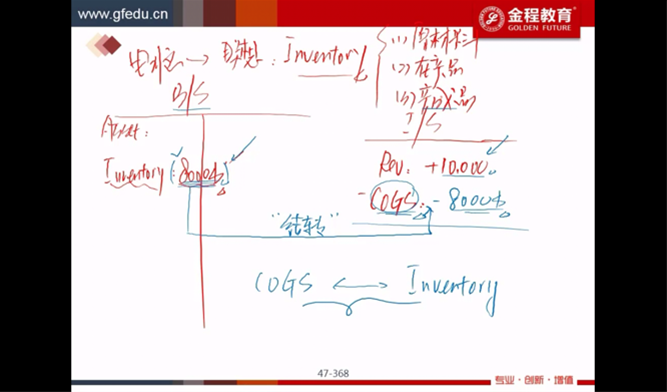 www.gfedu.cn
金程教育
GOLDEN FUTURE
联想: Inventory
(1) 原材料
(2) 在产品
(3) 产成品
B/S
I/S
Asset:
Inventory (8000
Rev. +10.000
- COGS: -8000
"结转"
COGS ⟷ Inventory
47-368
专业·创新·增值